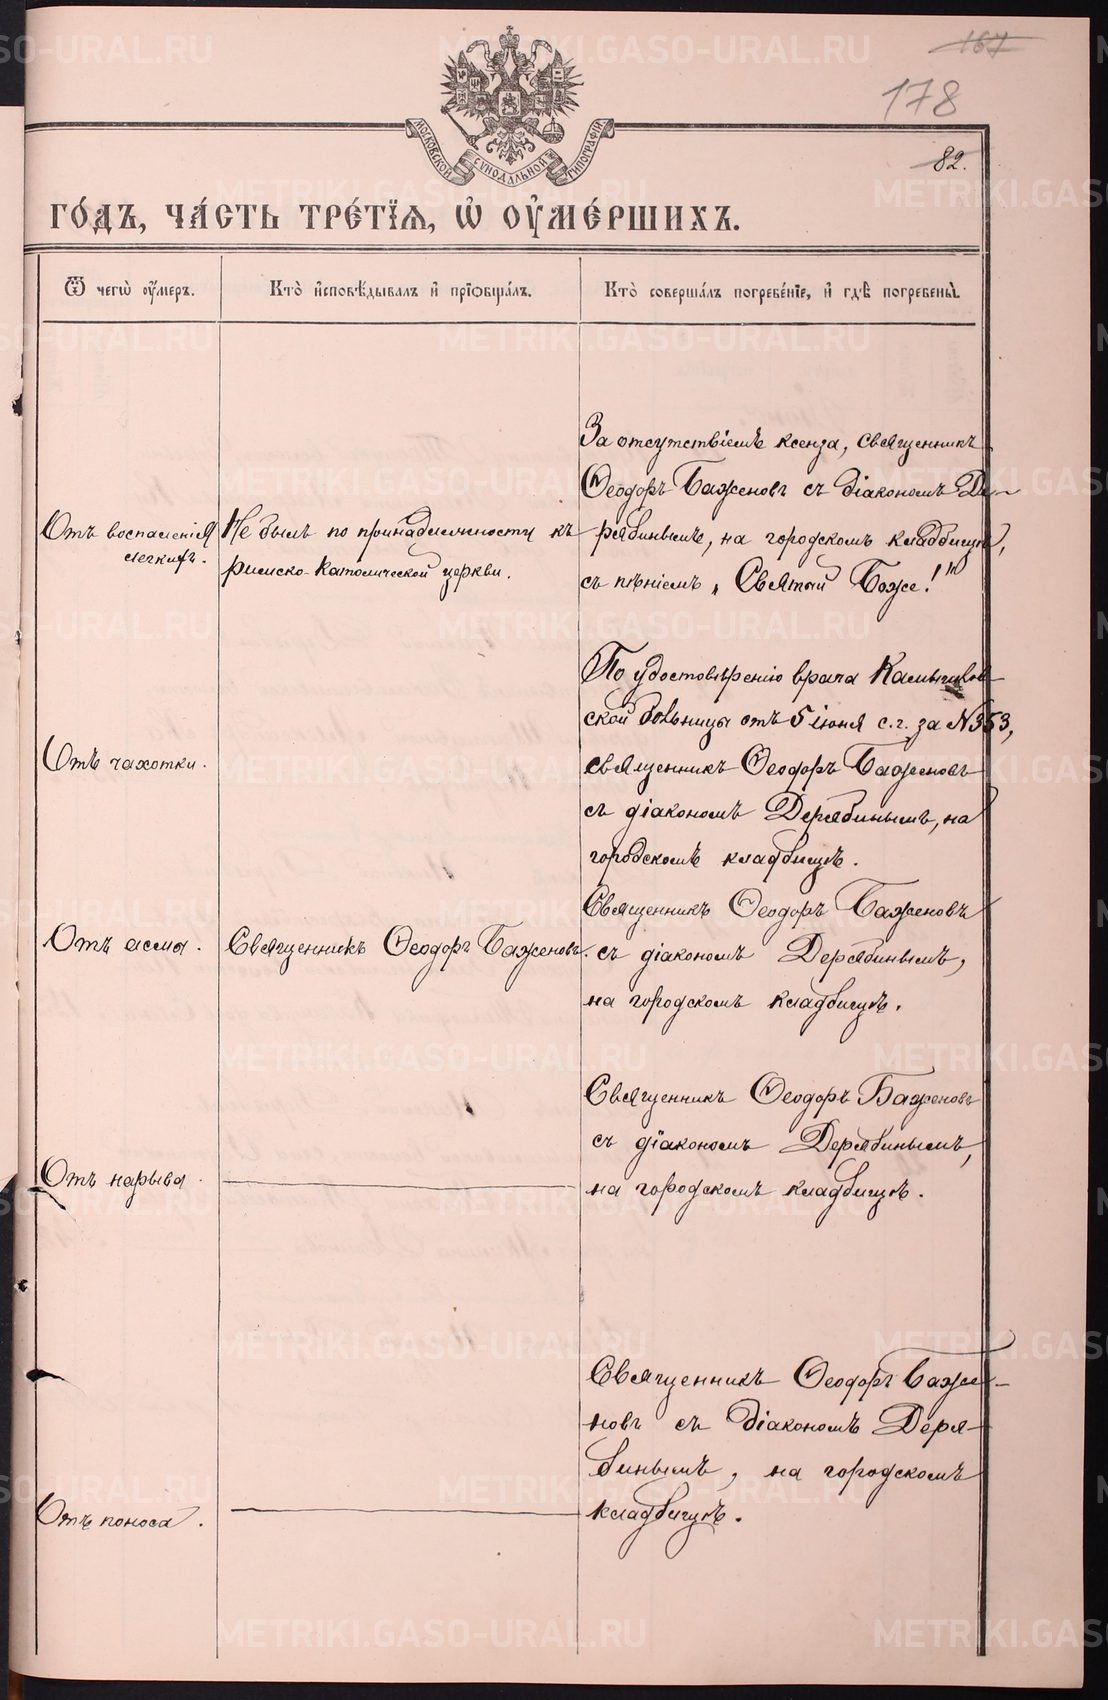 167
178
МОСКОВСКОЙ СѴНОДАЛЬНОЙ ТИПОГРАФІИ
82.
ГО́ДЪ, ЧА́СТЬ ТРЕ́ТЇѦ, Ѡ҆ ОУ҆МЕ́РШИХЪ.
Ѿ чегѡ̀ оу҆́меръ.
Кто̀ и҆сповѣ́дывалъ и҆ прїѡбща́лъ.
Кто̀ соверша́лъ погребе́нїе, и҆ гдѣ̀ погребены̀.
Отъ воспаленія
легкихъ.
Не былъ по принадлежности къ
римско-католической церкви.
За отсутствіемъ ксенза, священникъ
Ѳеодоръ Баженовъ съ діакономъ Де-
рябинымъ, на городскомъ кладбищѣ,
съ пѣніемъ „Святый Боже!"
Отъ чахотки.
По удостовѣренію врача
ской больницы отъ 5 іюня с.г. за №353,
священникъ Ѳеодоръ Баженовъ
съ діакономъ Дерябинымъ, на
городскомъ кладбищѣ.
Отъ асмы.
Священникъ Ѳеодоръ Баженовъ.
Священникъ Ѳеодоръ Баженовъ
съ діакономъ Дерябинымъ,
на городскомъ кладбищѣ.
Отъ нарыва.
Священникъ Ѳеодоръ Баженовъ
съ діакономъ Дерябинымъ,
на городскомъ кладбищѣ.
Отъ поноса.
Священникъ Ѳеодоръ Баже-
новъ съ діакономъ Деря-
бинымъ, на городскомъ
кладбищѣ.
METRIKI.GASO-URAL.RU